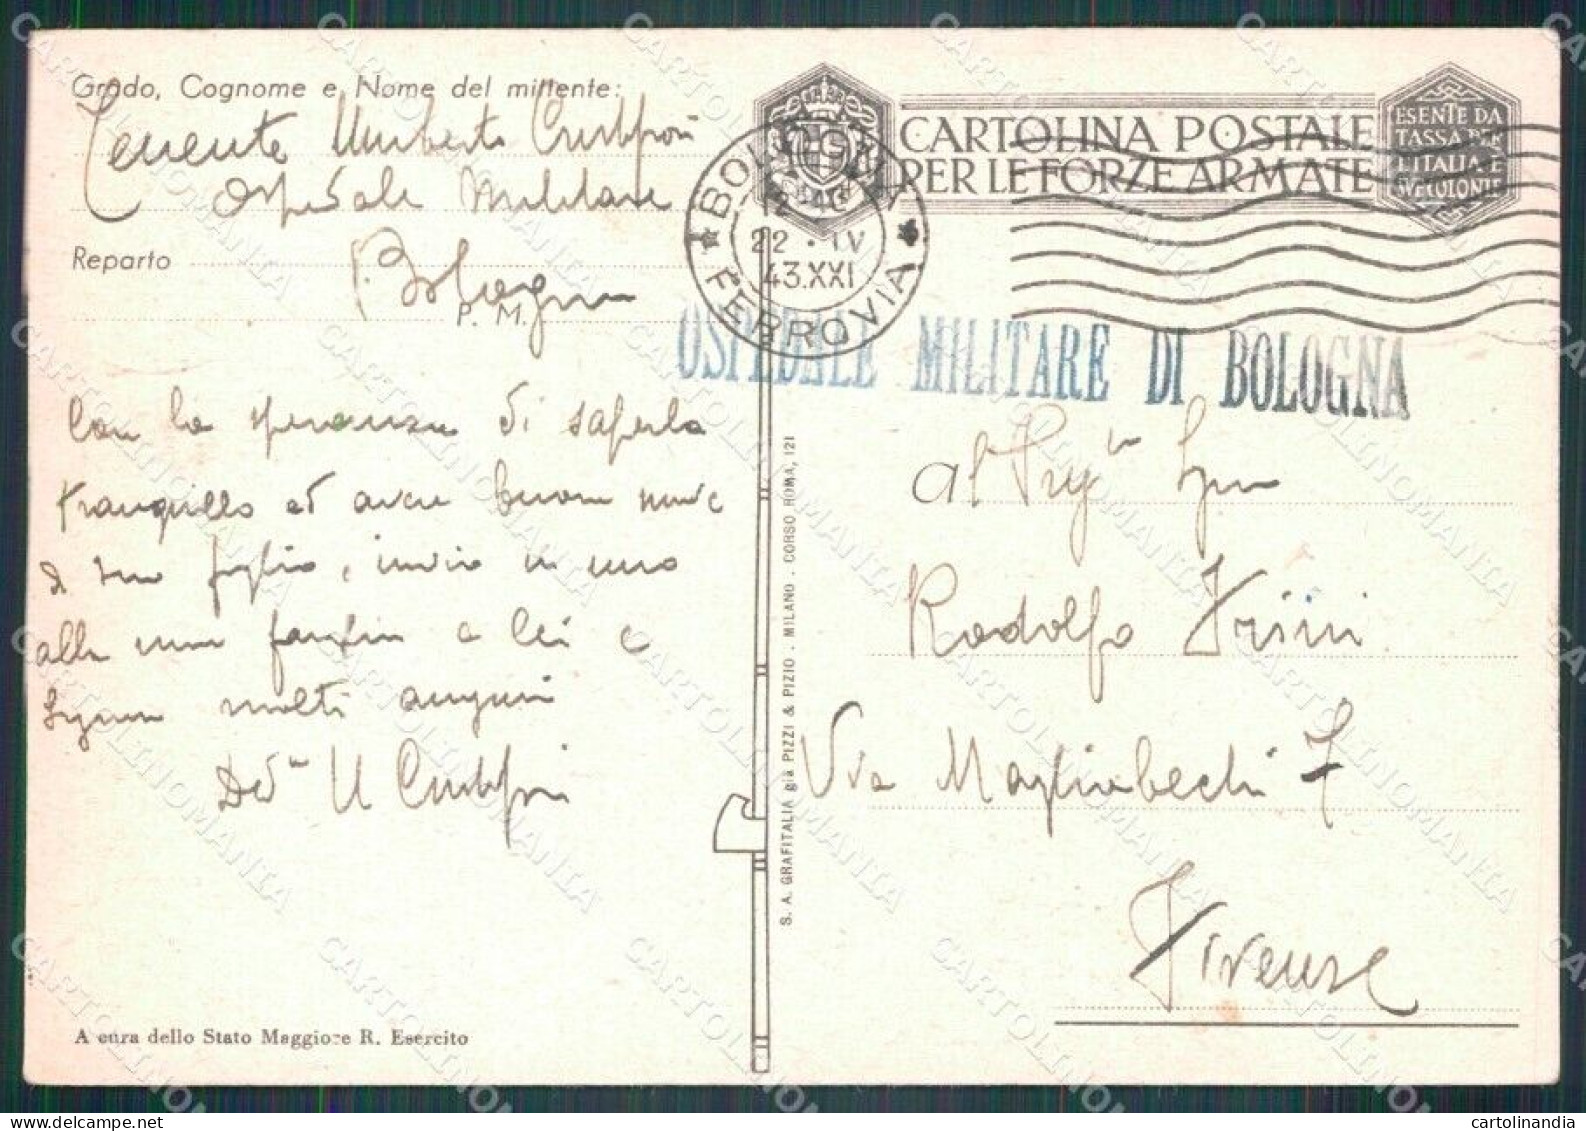 Grado, Cognome e Nome del mittente:
Tenente Umberto
Ospedale Militare
Reparto
Bologna
P. M.
Con la speranza di saperla
tranquillo ed avere buone
di suo figlio, invio
alla e lei e
Signora molti auguri
Dev
CARTOLINA POSTALE
PER LE FORZE ARMATE
ESENTE DA
TASSA PER
L'ITALIA E
SVE COLONIE
BOLOGNA
22 · IV
43.XXI
FERROVIA
OSPEDALE MILITARE DI BOLOGNA
Al
Rodolfo
Via Magliabechi 7
Firenze
S. A. GRAFITALIA già PIZZI & PIZIO . MILANO . CORSO ROMA, 121
A cura dello Stato Maggiore R. Esercito
CARTOLINOMANIA
cartolinandia